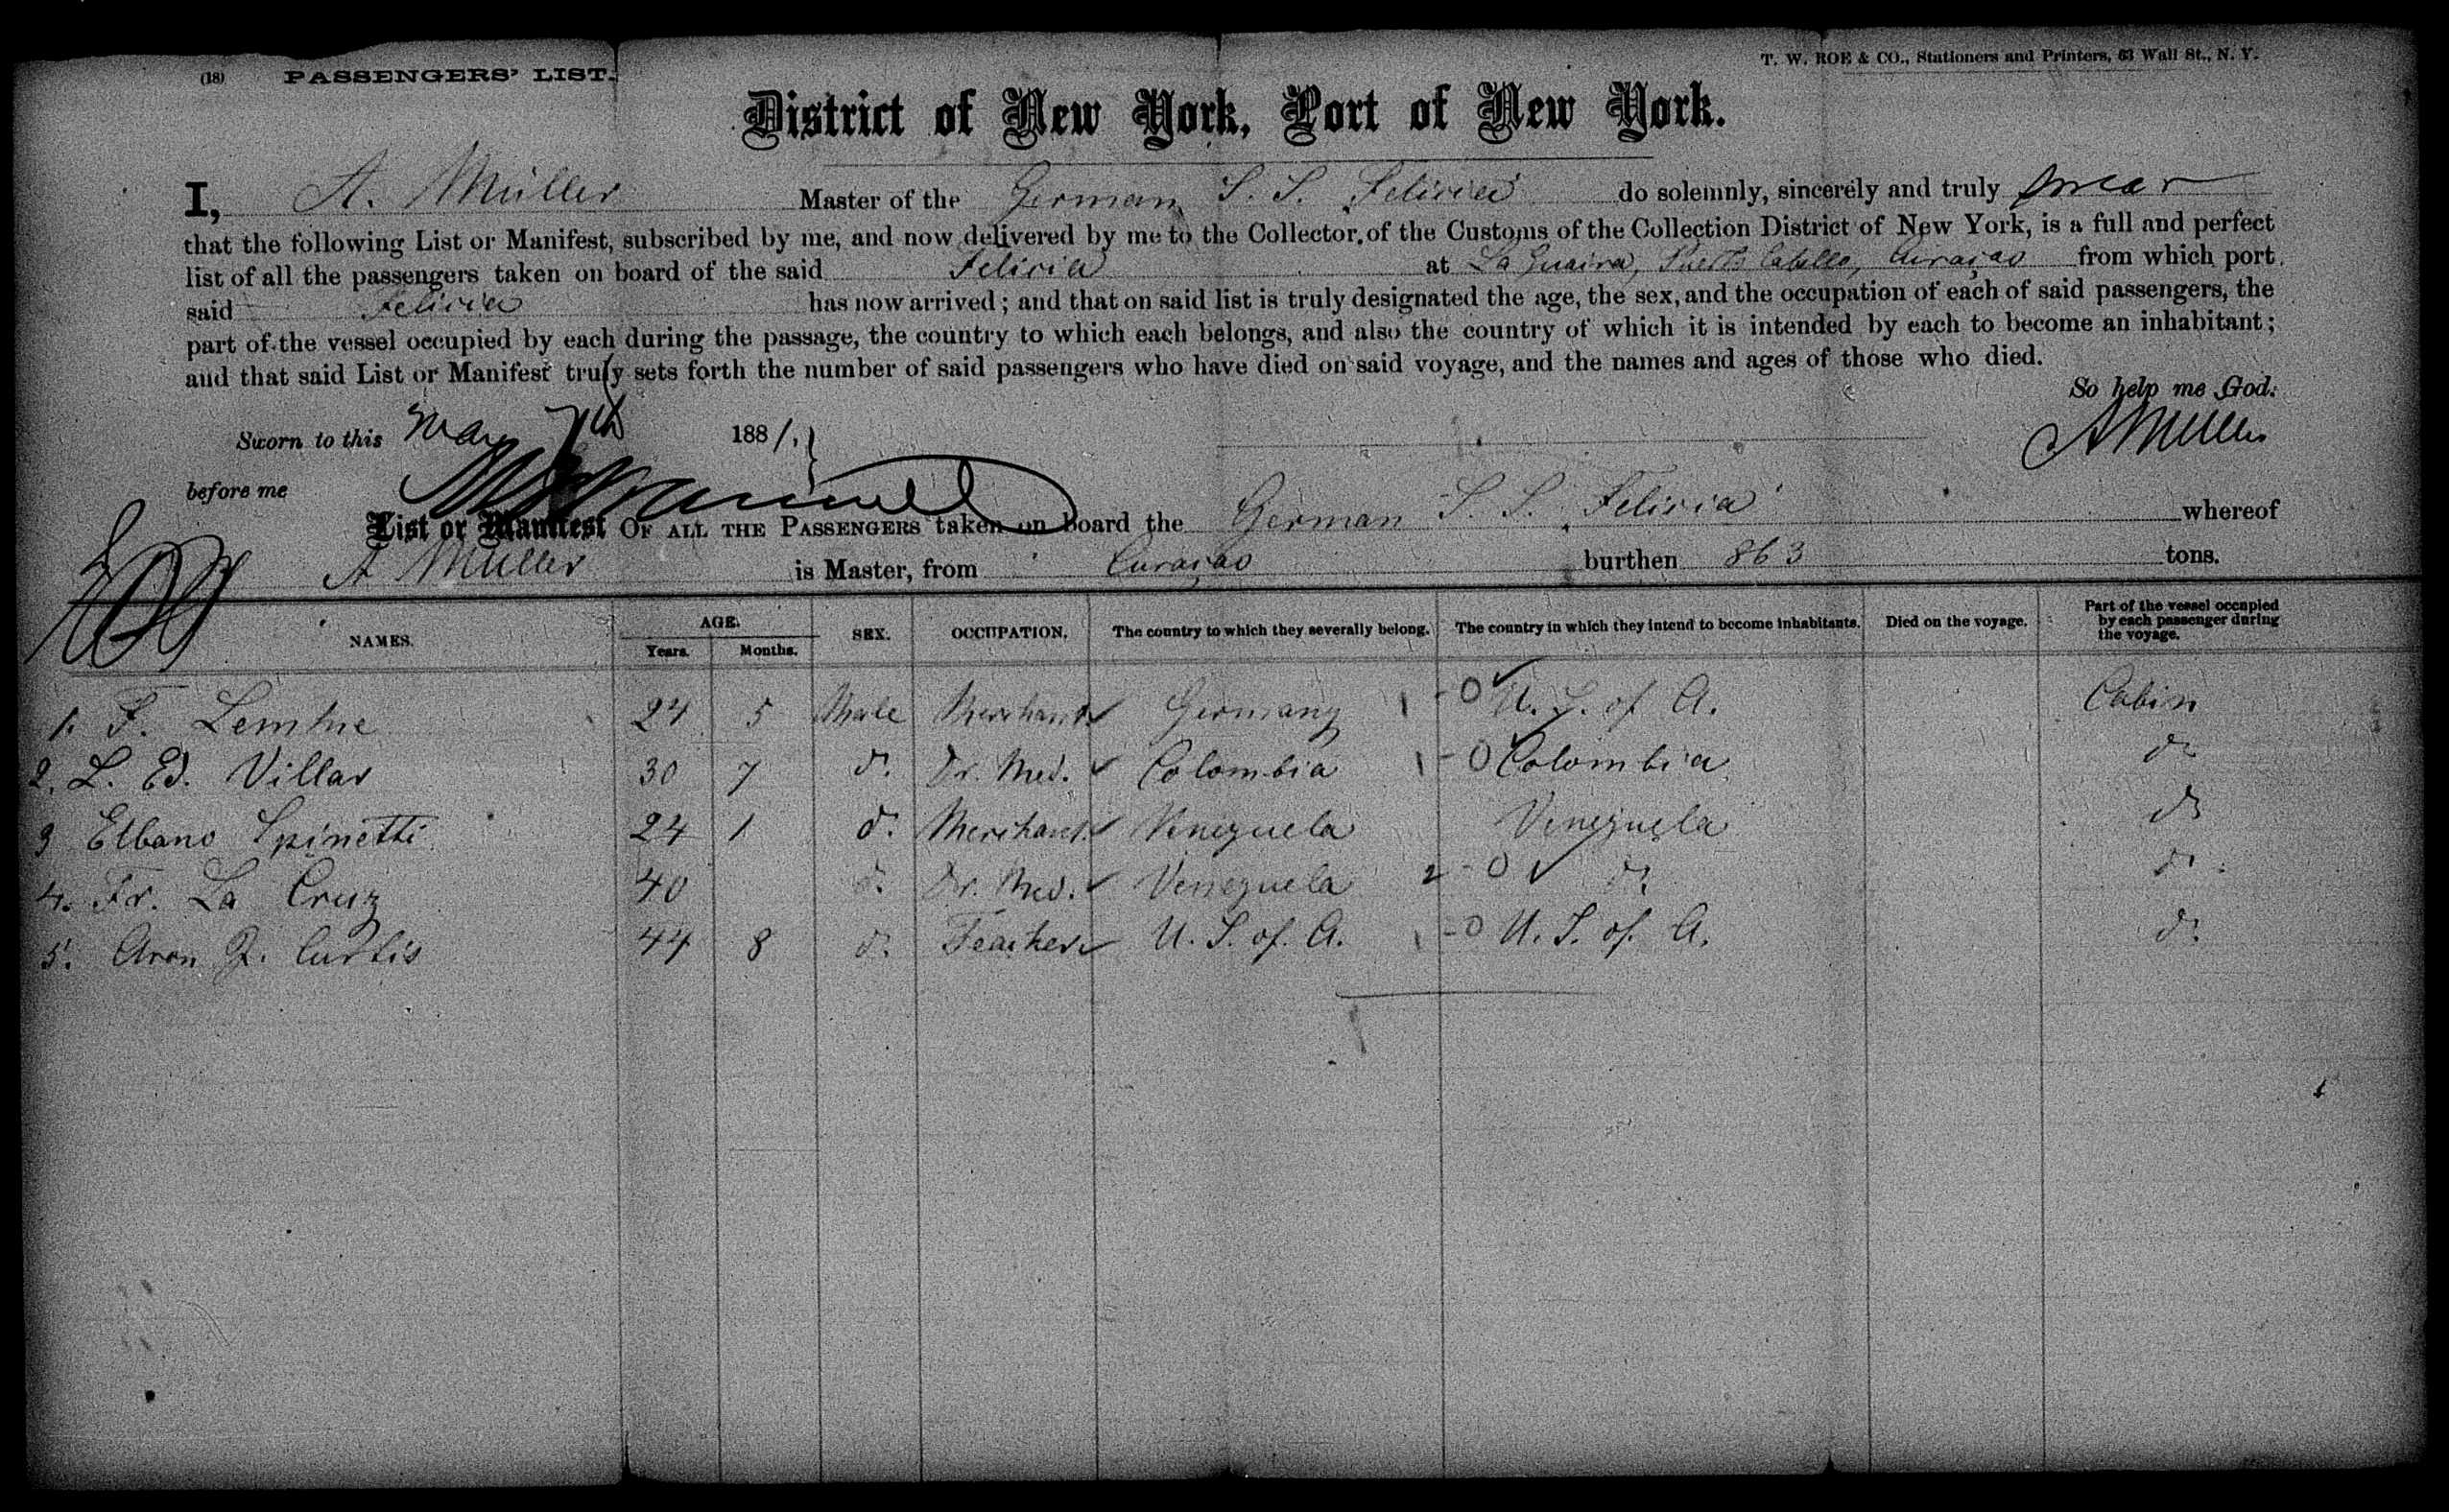 (18) PASSENGERS' LIST.
T. W. ROE & CO., Stationers and Printers, 63 Wall St., N. Y.
District of New York, Port of New York.
I, A. Müller Master of the German S. S. Felicia do solemnly, sincerely and truly swear
that the following List or Manifest, subscribed by me, and now delivered by me to the Collector of the Customs of the Collection District of New York, is a full and perfect
list of all the passengers taken on board of the said Felicia at La Guaira, Puerto Cabello, Curaçao from which port
said Felicia has now arrived; and that on said list is truly designated the age, the sex, and the occupation of each of said passengers, the
part of the vessel occupied by each during the passage, the country to which each belongs, and also the country of which it is intended by each to become an inhabitant;
and that said List or Manifest truly sets forth the number of said passengers who have died on said voyage, and the names and ages of those who died.
So help me God.
Sworn to this May 7th 1881.
A Müller
before me
List or Manifest OF ALL THE PASSENGERS taken on board the German S. S. Felicia whereof
A Müller is Master, from Curaçao burthen 863 tons.
NAMES. AGE. Years. Months. SEX. OCCUPATION. The country to which they severally belong. The country in which they intend to become inhabitants. Died on the voyage. Part of the vessel occupied by each passenger during the voyage.
1. F. Lemhne 24 5 Male Merchant Germany 1 - 0 U. S. of A. Cabin
2. L. Ed. Villar 30 7 do. Dr. Med. Colombia 1 - 0 Colombia do
3 Elbano Spinetti 24 1 do. Merchant Venezuela Venezuela do
4. Fr. La Cruz 40 do. Dr. Med. Venezuela 2 - 0 do. do.
5. Aron Z. Curtis 44 8 do. Teacher U. S. of. A. 1 - 0 U. S. of. A. do.